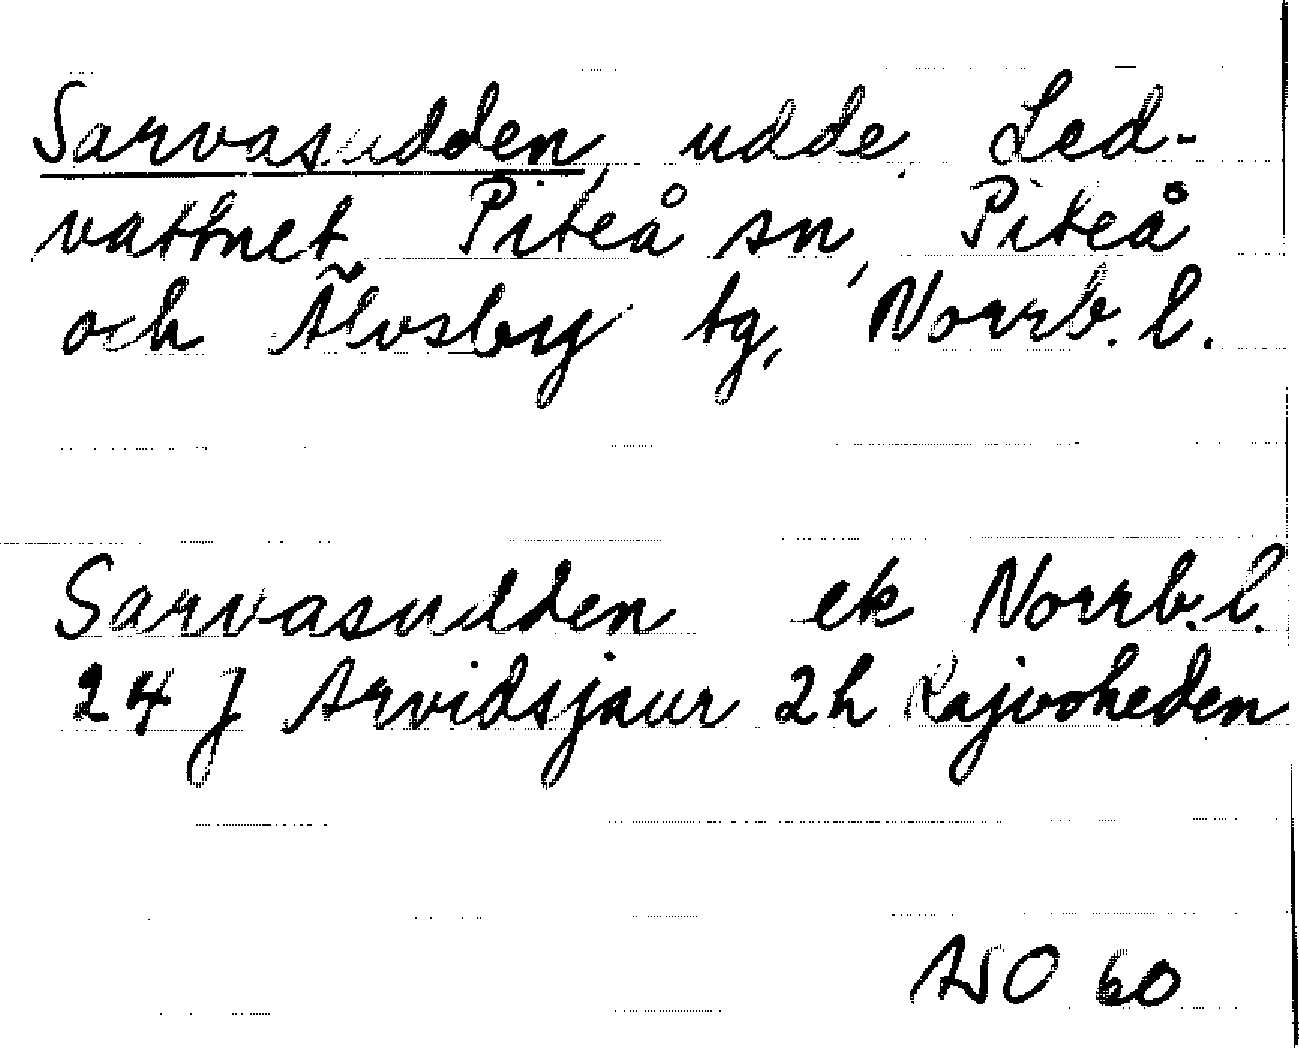 Sarvasudden, udde, Led-
vattnet Piteå sn, Piteå
och Älvsby tg, Norrb. l.
Sarvasudden ek Norrb. l.
24 J Arvidsjaur 2h Kajvoheden
60